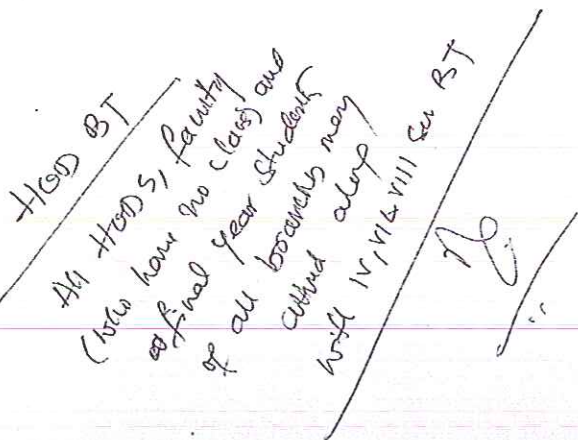 HOD BT
All HODs, faculty
(who have no class) and
final year students
of all branches may
attend along
with IV, VI & VIII Sem BT